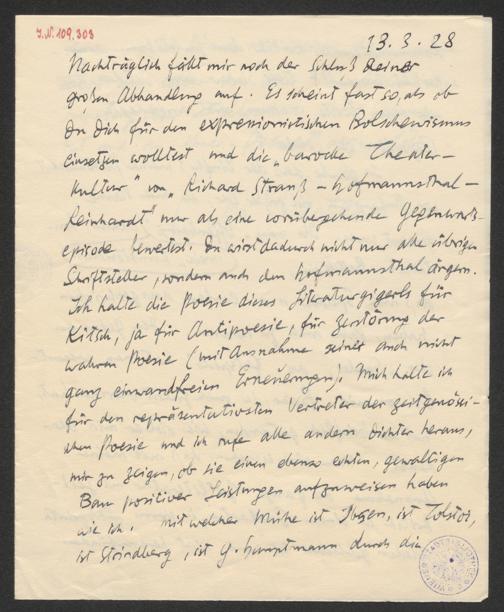 J.N. 109.303
13.3.28
Nachträglich fällt mir noch der Schluß Deiner
großen Abhandlung auf. Es scheint fast so, als ob
Du Dich für den expressionistischen Bolschewismus
einsetzen wolltest und die „barocke Theater-
kultur" von „Richard Strauß - Hofmannsthal -
Reinhardt" nur als eine vorübergehende Gegenwarts-
episode bewertest. Du wirst dadurch nicht nur alle übrigen
Schriftsteller, sondern auch den Hofmannsthal ärgern.
Ich halte die Poesie dieses Literaturgigerls für
Kitsch, ja für Antipoesie, für Zerstörung der
wahren Poesie (mit Ausnahme seiner auch nicht
ganz einwandfreien Erneuerungen). Mich halte ich
für den repräsentativsten Vertreter der zeitgenössi-
schen Poesie und ich rufe alle andern Dichter heraus,
mir zu zeigen, ob sie einen ebenso echten, gewaltigen
Bau positiver Leistungen aufzuweisen haben
wie ich. Mit welcher Mühe ist Ibsen, ist Tolstoi,
ist Strindberg, ist G. Hauptmann durch die